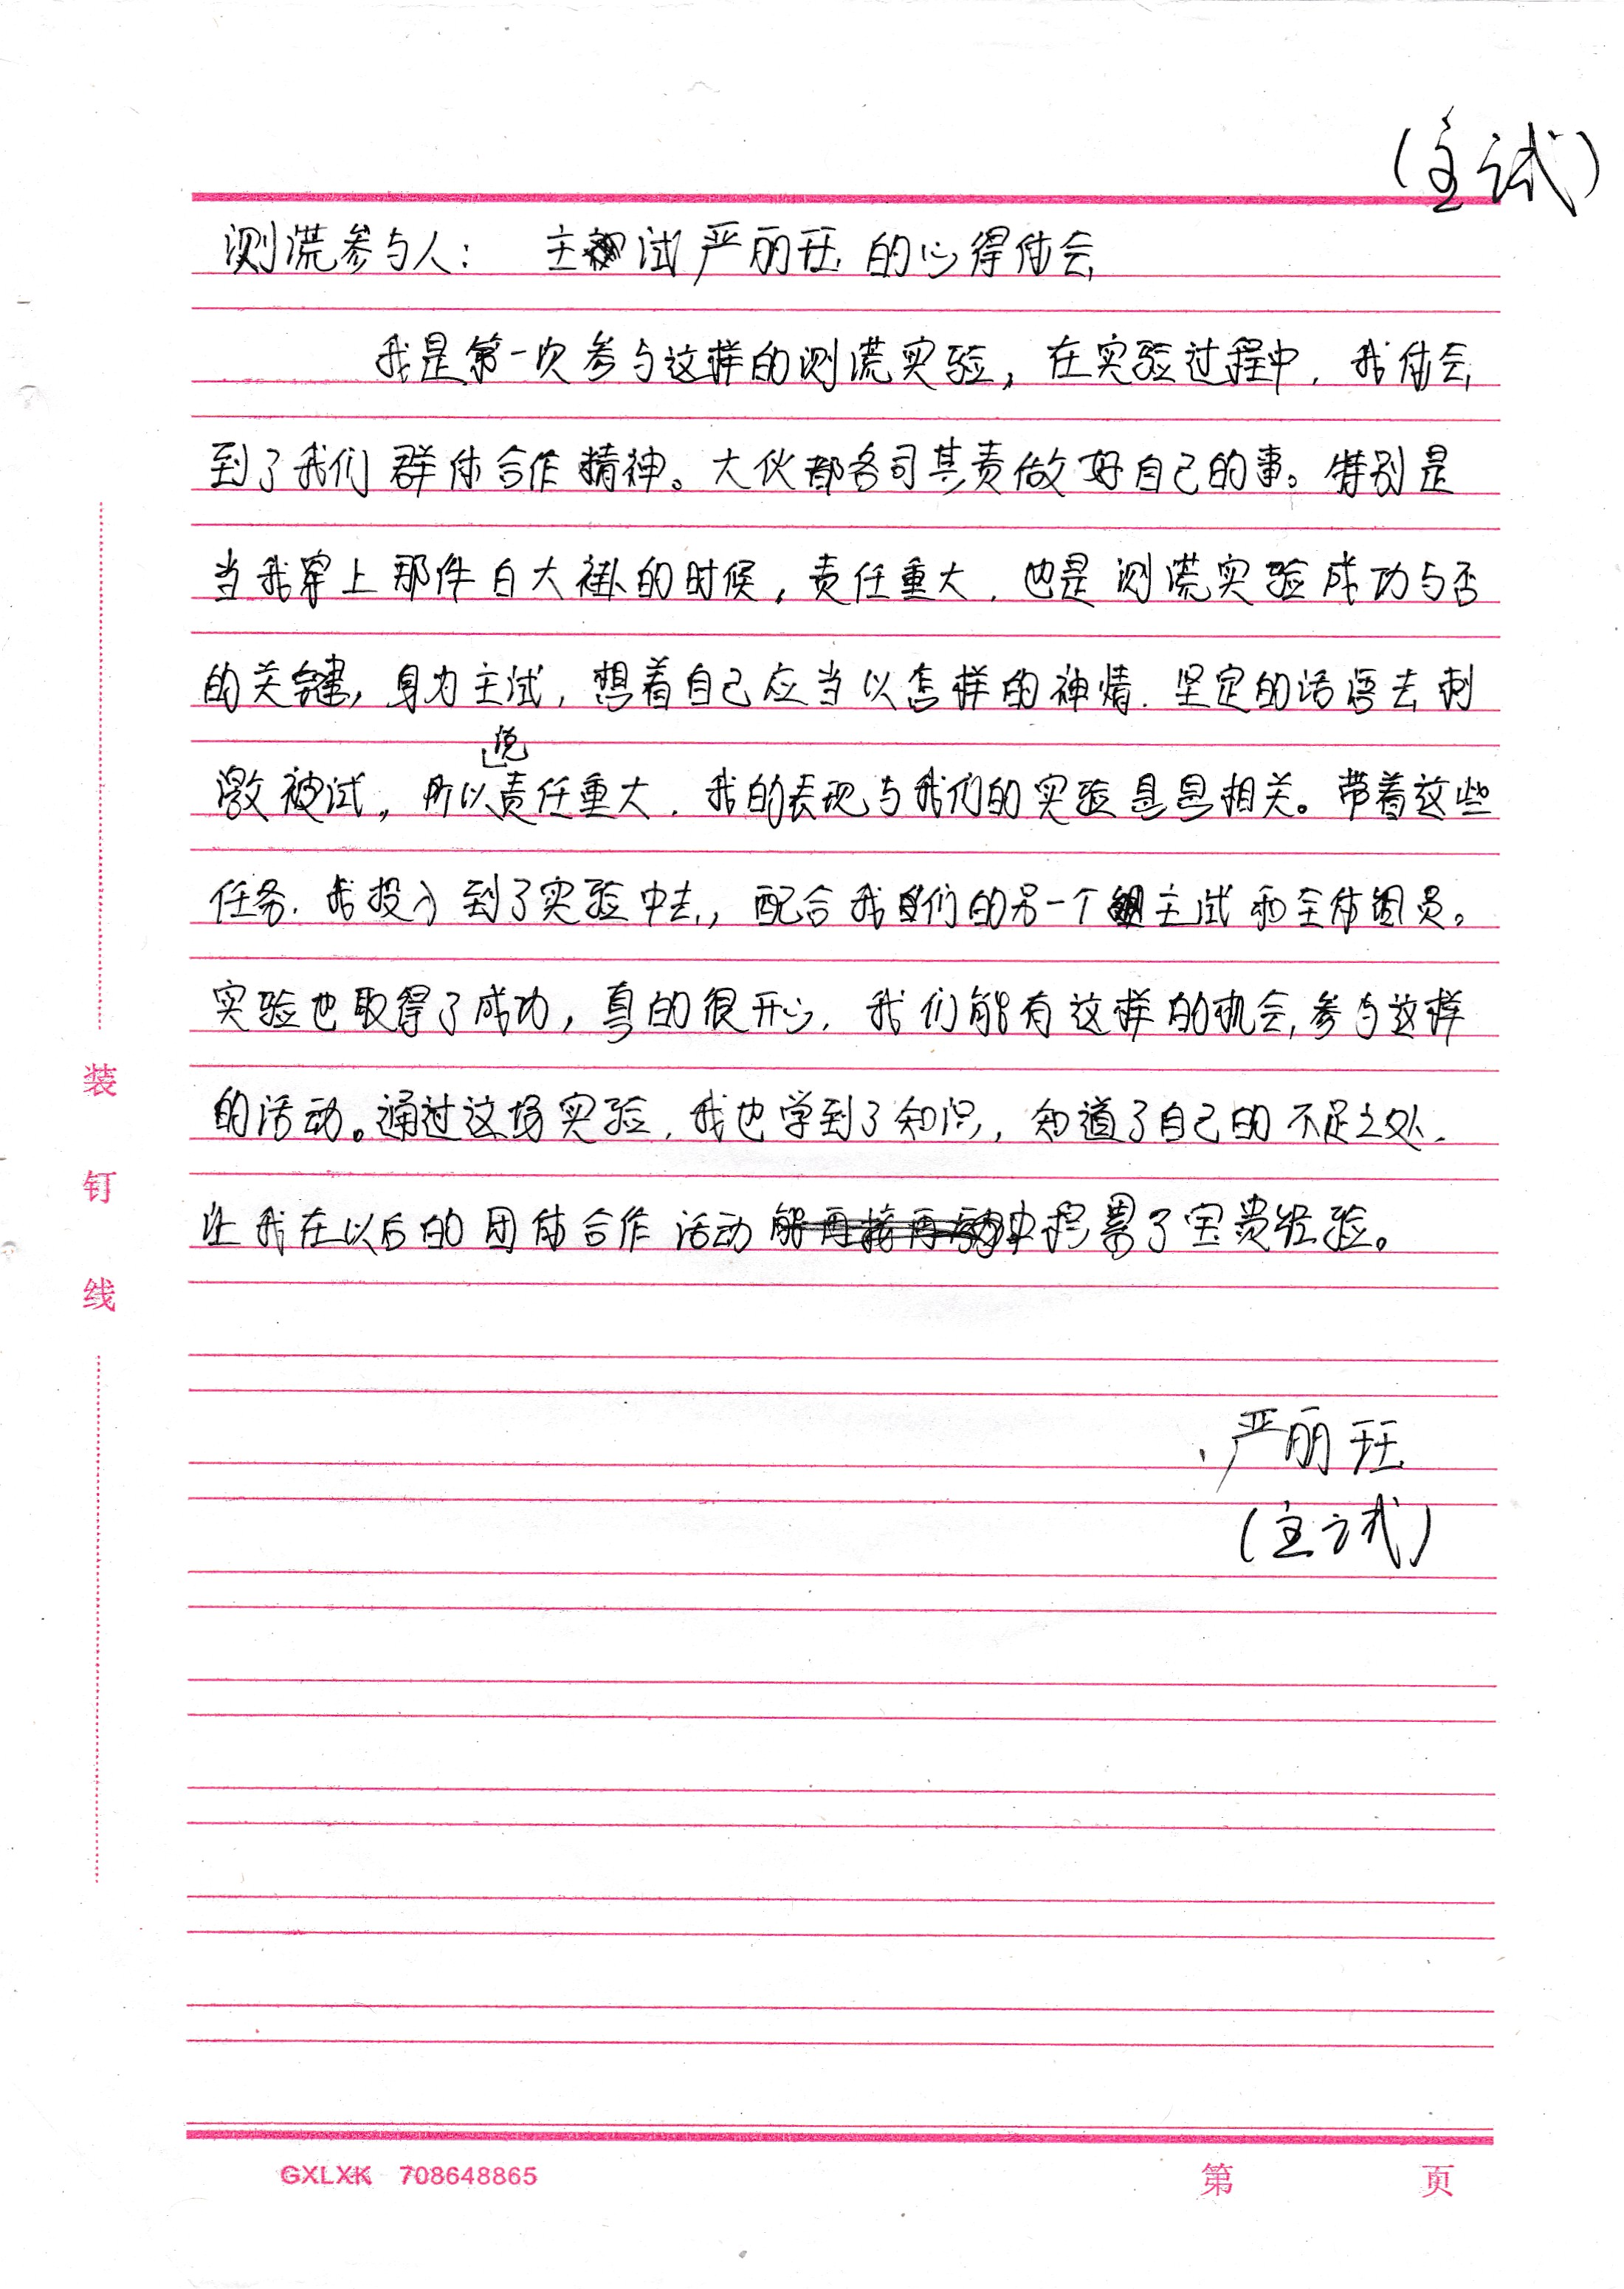 (主试)
测谎参与人： 主试严丽珏的心得体会
我是第一次参与这样的测谎实验，在实验过程中，我体会
到了我们群体合作精神。大伙都各司其责做好自己的事。特别是
当我穿上那件白大褂的时候，责任重大，也是测谎实验成功与否
的关键，身为主试，想着自己应当以怎样的神情、坚定的话语去刺
激被试，所以说责任重大，我的表现与我们的实验息息相关。带着这些
任务，我投入到了实验中去，配合我们的另一个主试和全体组员。
实验也取得了成功，真的很开心，我们能有这样的机会，参与这样
的活动。通过这场实验，我也学到了知识，知道了自己的不足之处，
让我在以后的团体合作活动中积累了宝贵经验。
严丽珏
(主试)
装
钉
线
GXLXK 708648865
第 页